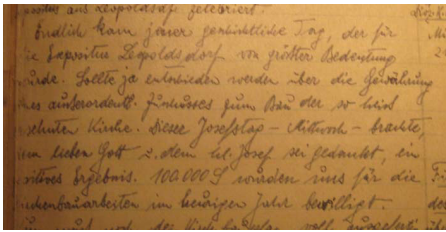 aus Leopoldsdf gefeiert.
Endlich kam jener geschichtliche Tag, der für
ie Expositur Leopoldsdorf von größter Bedeutung
urde. Sollte ja entschieden werden über die Gewährung
nes außerordentl. Zuschusses zum Bau der so heiß
sehnten Kirche. Dieser Josefstag - Mittwoch - brachte,
em lieben Gott u. dem hl. Josef sei gedankt, ein
sitives Ergebnis. 100.000 S wurden uns für die
chenbauarbeiten im heurigen Jahr bewilligt.
der voll